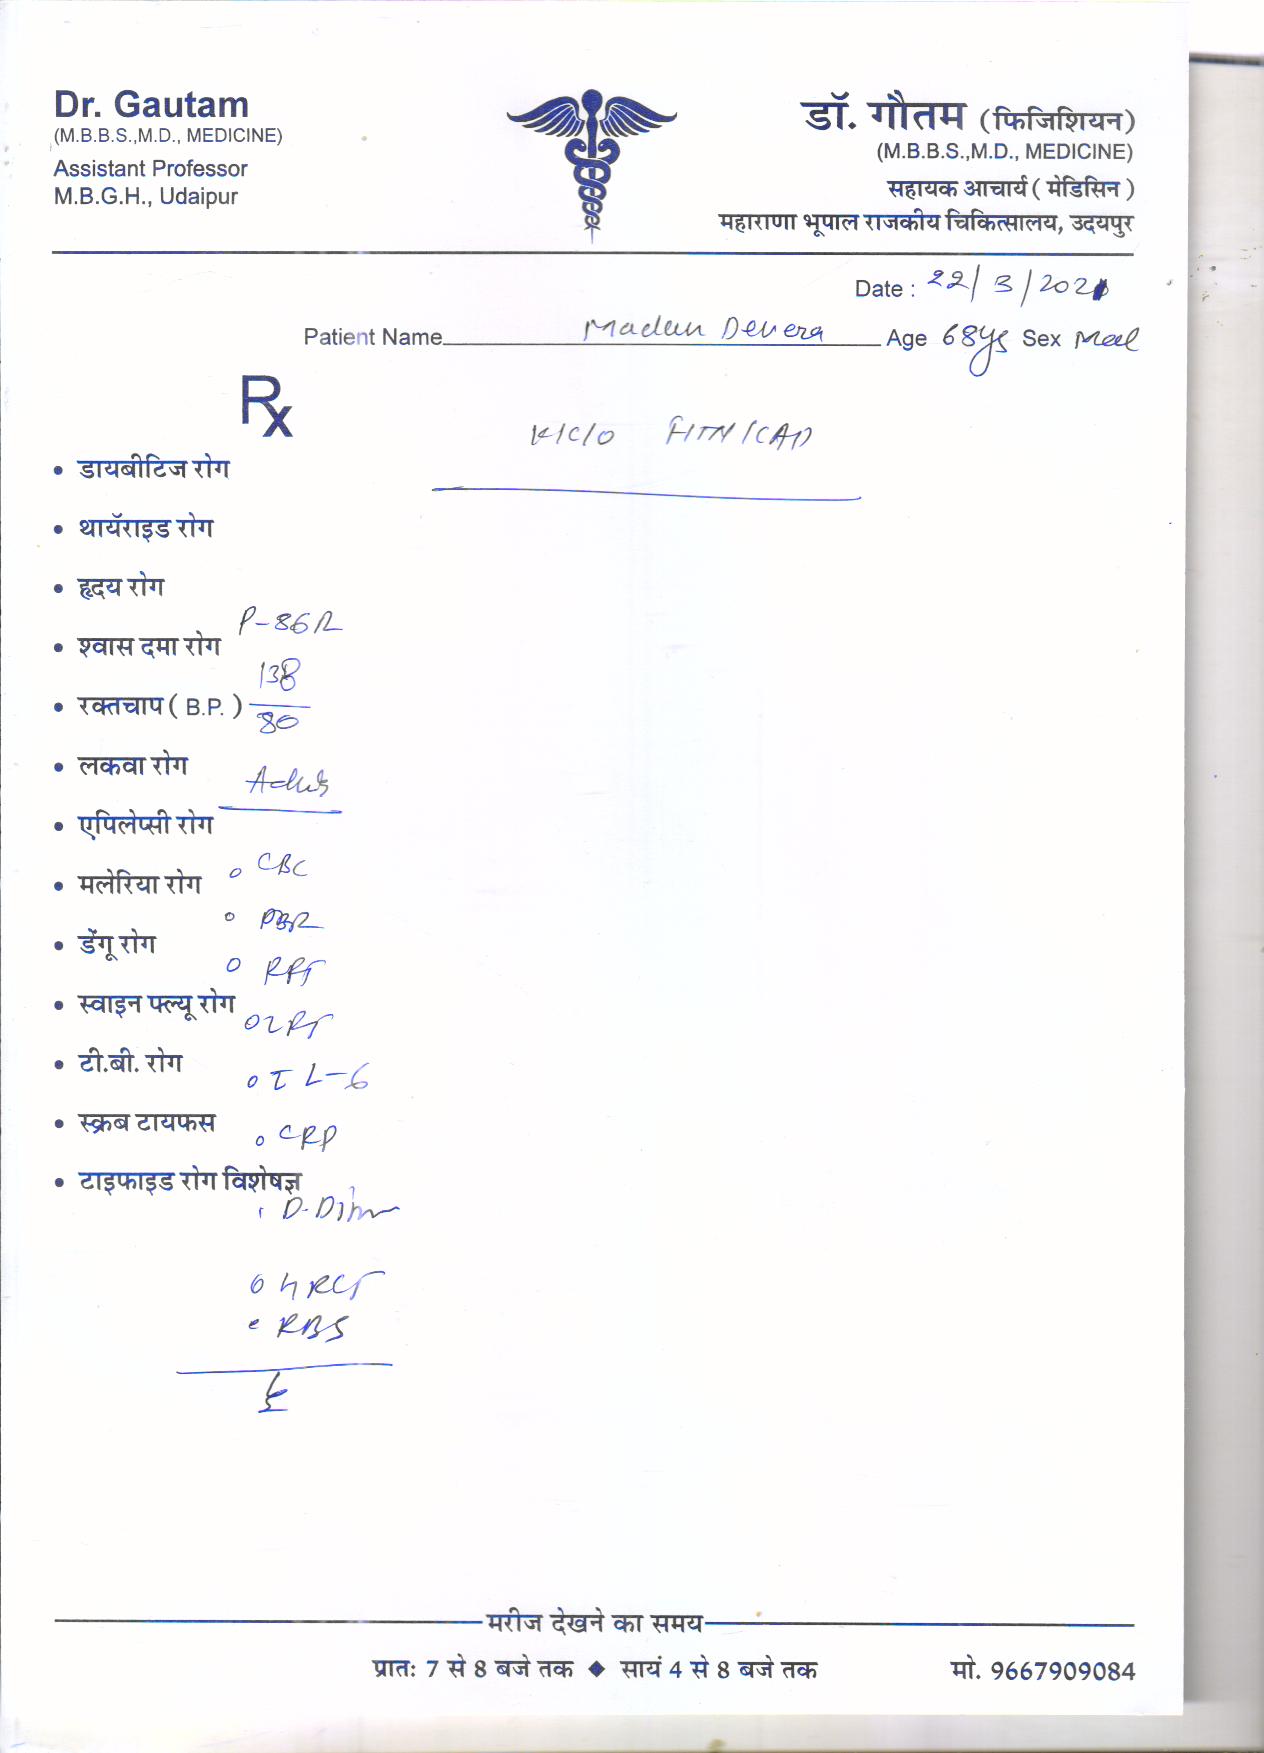 Dr. Gautam
(M.B.B.S.,M.D., MEDICINE)
Assistant Professor
M.B.G.H., Udaipur
डॉ. गौतम (फिजिशियन)
(M.B.B.S.,M.D., MEDICINE)
सहायक आचार्य ( मेडिसिन )
महाराणा भूपाल राजकीय चिकित्सालय, उदयपुर
Date : 22/3/2021
Patient Name Madan Age 68ys Sex
Rx
K/C/O HTN/CAD
• डायबीटिज रोग
• थायॅराइड रोग
• हृदय रोग
P-86
• श्वास दमा रोग
138
• रक्तचाप ( B.P. )
80
• लकवा रोग
• एपिलेप्सी रोग
CBC
• मलेरिया रोग
• डेंगू रोग
RFT
• स्वाइन फ्ल्यू रोग
LFT
• टी.बी. रोग
IL-6
• स्क्रब टायफस
CRP
• टाइफाइड रोग विशेषज्ञ
D-Dimer
HRCT
RBS
मरीज देखने का समय
प्रातः 7 से 8 बजे तक ◆ सायं 4 से 8 बजे तक
मो. 9667909084